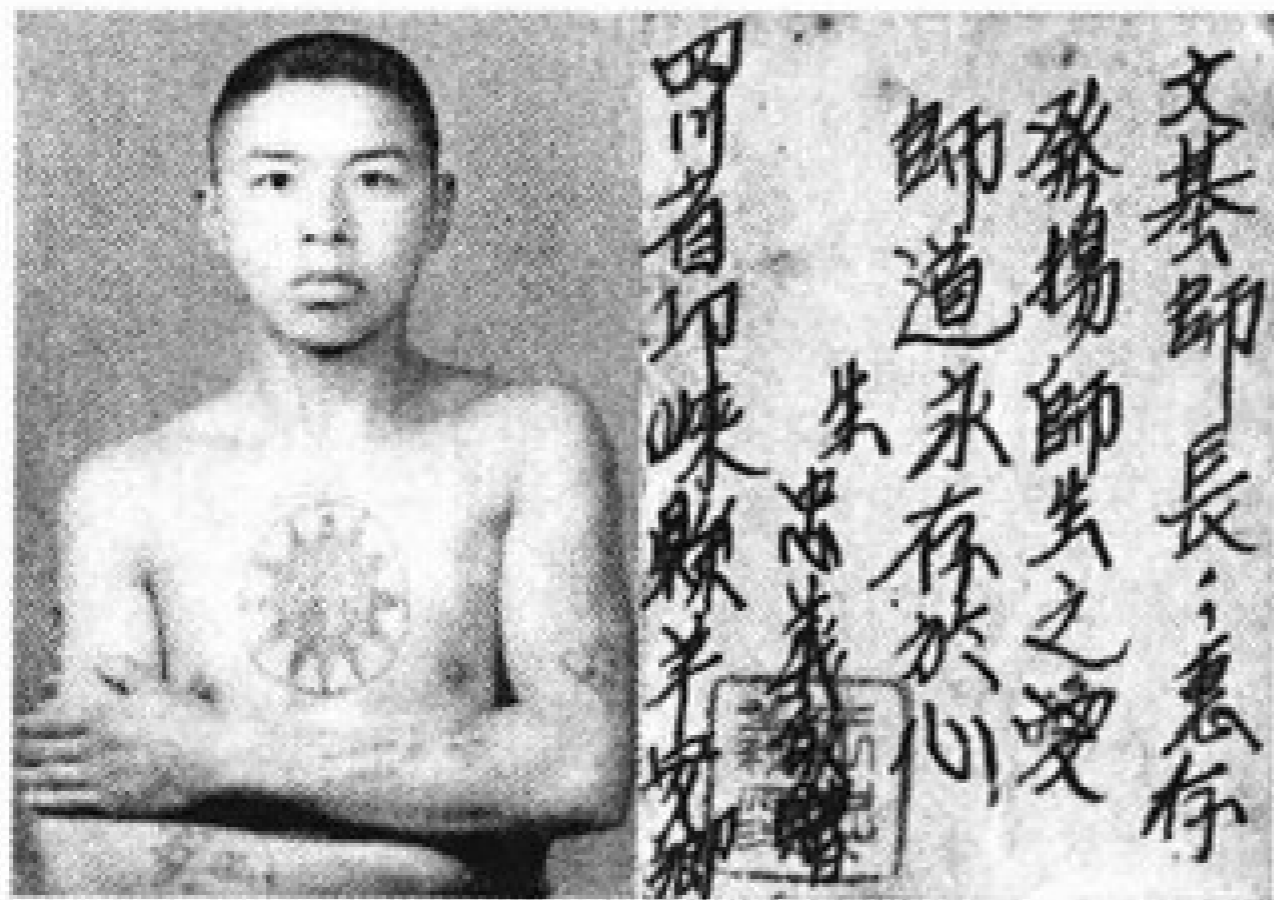 文基師長:惠存
發揚師生之愛
師道永存於心
朱忠義敬贈
四川省邛崍縣羊安鄉